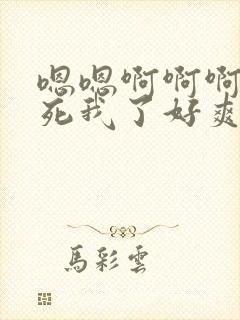 嗯嗯啊啊啊
死我了好爽
馬彩雲